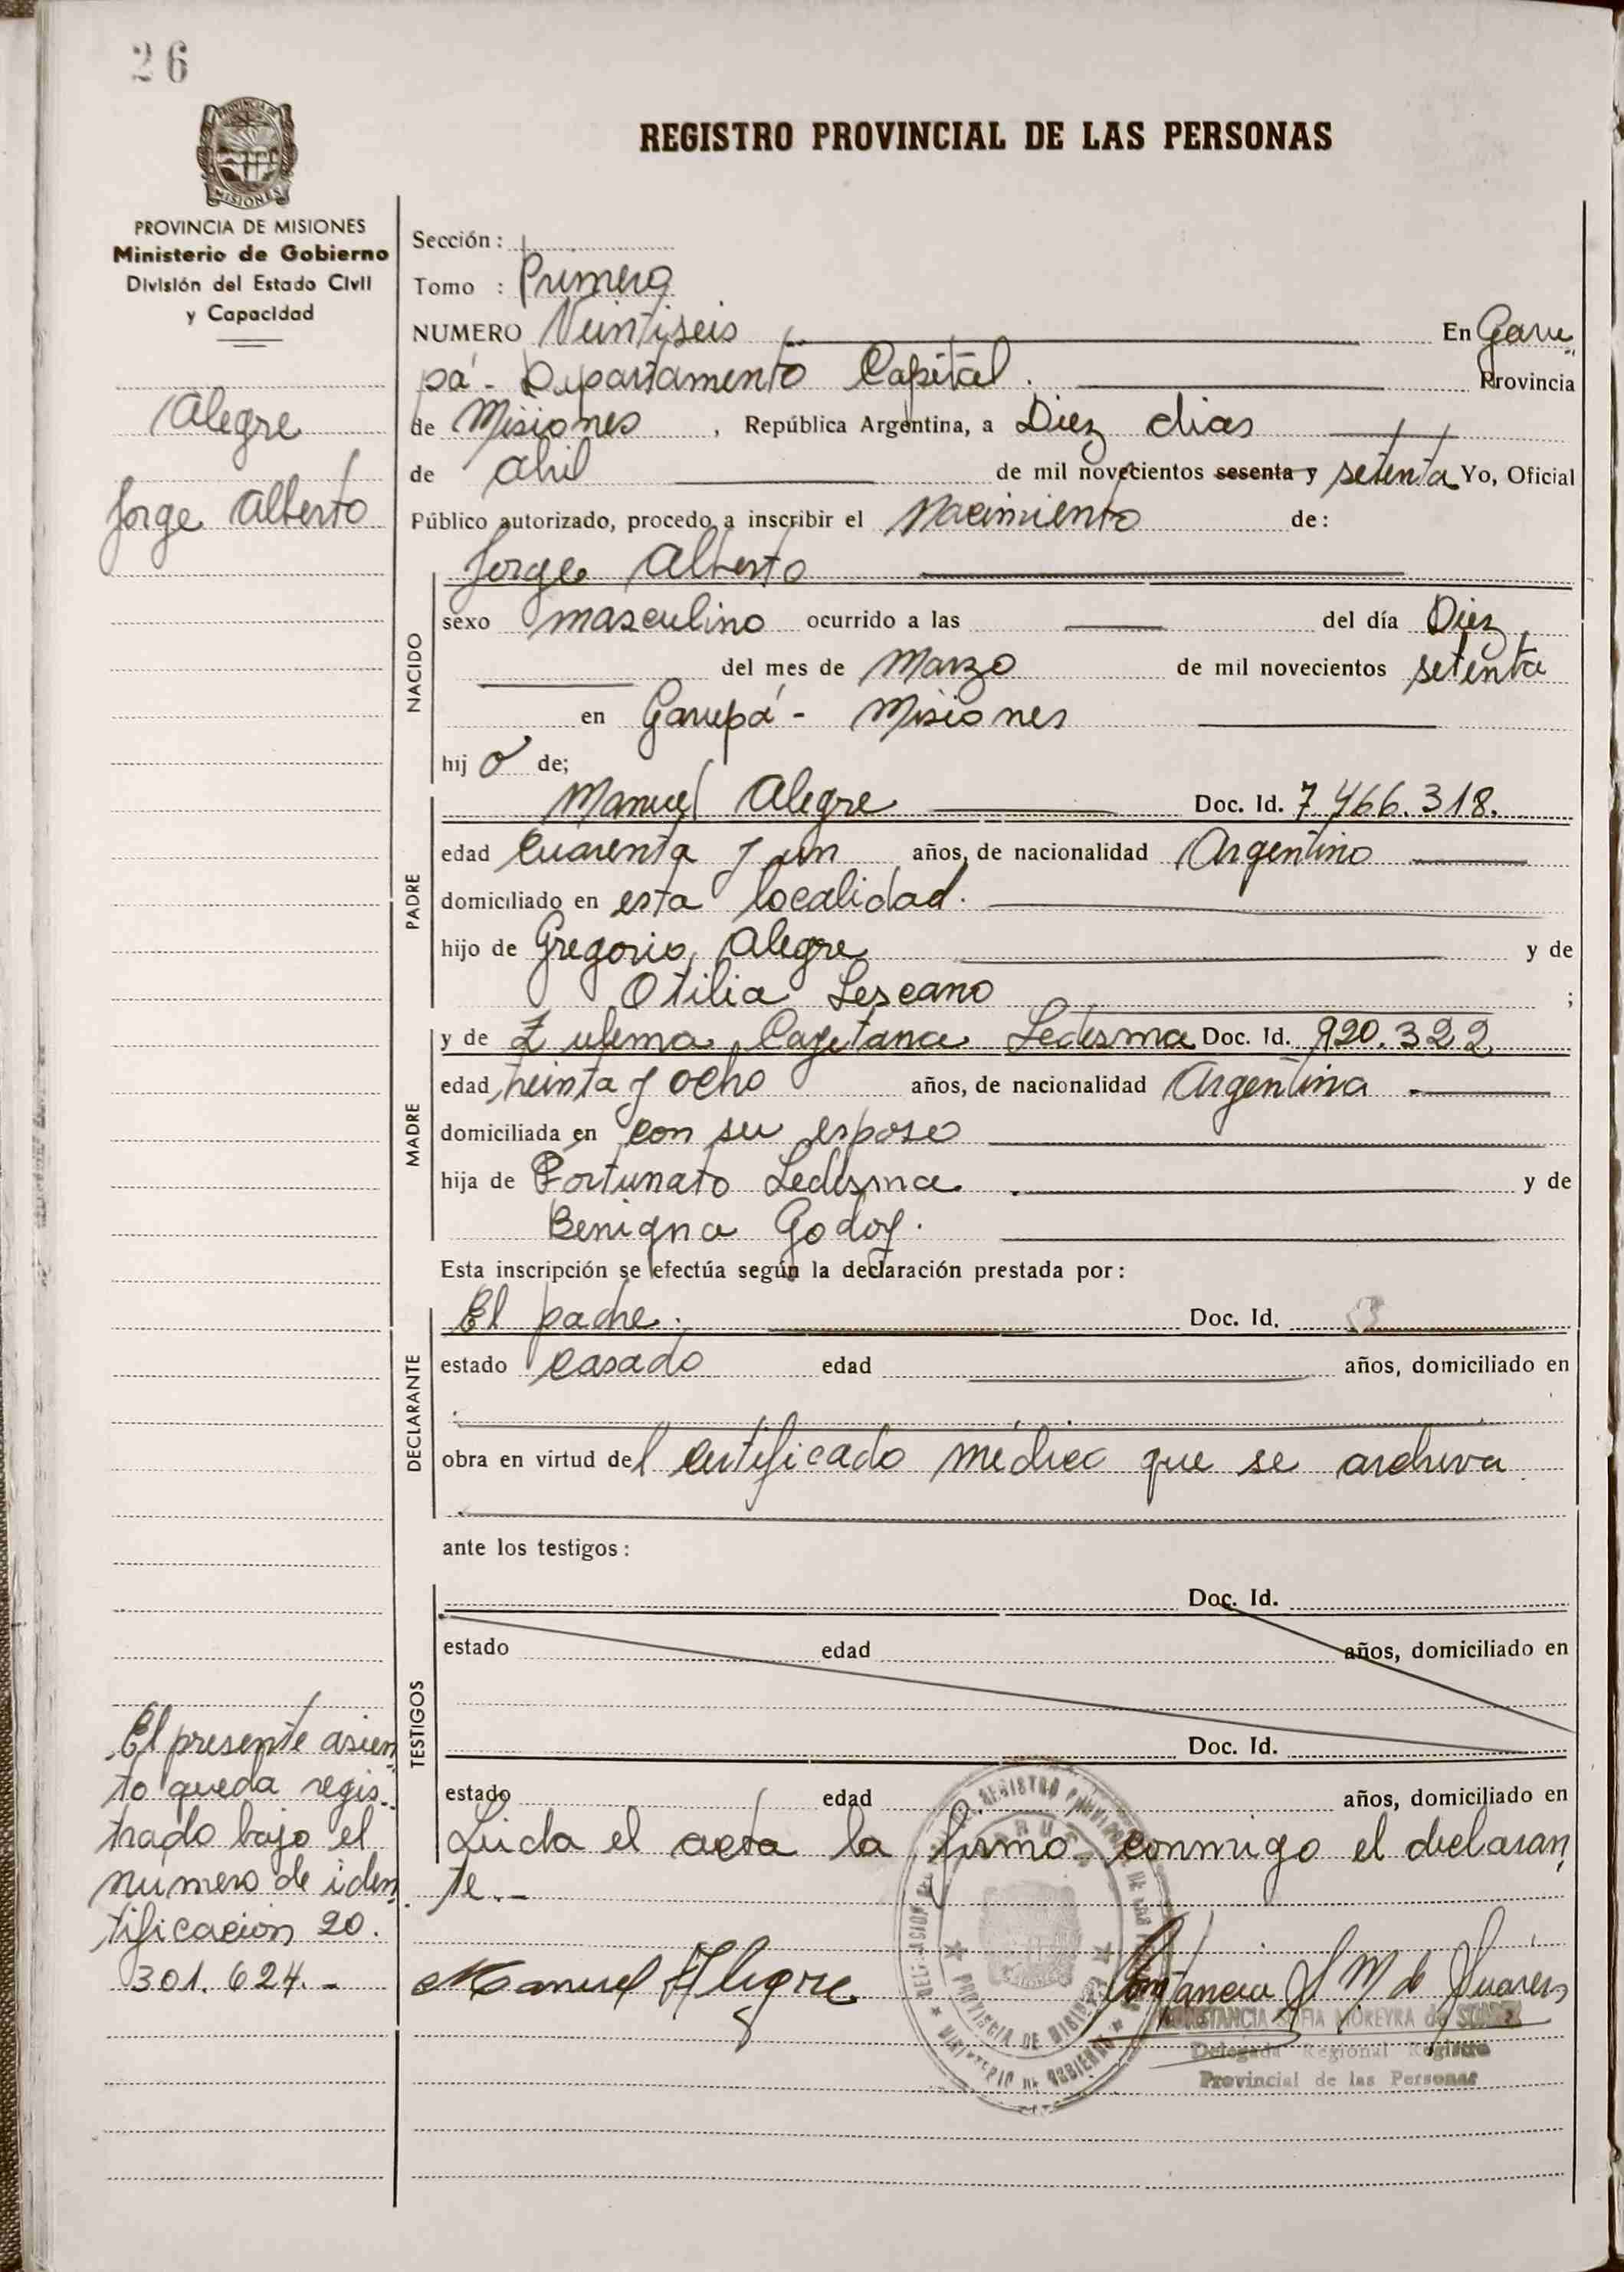 26
PROVINCIA DE
MISIONES
REGISTRO PROVINCIAL DE LAS PERSONAS
PROVINCIA DE MISIONES
Ministerio de Gobierno
División del Estado Civil
y Capacidad
Alegre
Jorge Alberto
Sección :
Tomo : Primero
NUMERO Veintiseis En Garu
pá - Departamento Capital. Provincia
de Misiones , República Argentina, a Diez dias
de Abril de mil novecientos sesenta y setenta Yo, Oficial
Público autorizado, procedo a inscribir el Nacimiento de:
NACIDO
Jorge Alberto
sexo masculino ocurrido a las del día Diez
del mes de Marzo de mil novecientos setenta
en Garupá - Misiones
hij o de;
PADRE
Manuel Alegre Doc. Id. 7.466.318.
edad Cuarenta y un años, de nacionalidad Argentino
domiciliado en esta localidad.
hijo de Gregorio Alegre y de
Otilia Lescano ;
MADRE
y de Zulema Cayetana Ledesma Doc. Id. 920.322
edad treinta y ocho años, de nacionalidad Argentina
domiciliada en con su esposo
hija de Fortunato Ledesma y de
Benigna Godoy.
Esta inscripción se efectúa según la declaración prestada por:
DECLARANTE
El padre. Doc. Id.
estado casado edad años, domiciliado en
obra en virtud del certificado médico que se archiva
ante los testigos:
TESTIGOS
Doc. Id.
estado edad años, domiciliado en
Doc. Id.
estado edad años, domiciliado en
Leida el acta la firmo conmigo el declaran
te.-
Manuel Alegre
Constancia S M de Suárez
CONSTANCIA SOFIA MOREYRA de SUAREZ
Delegada Regional Registro
Provincial de las Personas
REGISTRO PROVINCIAL DE LAS
PROVINCIA DE MISIONES
MINISTERIO DE GOBIERNO
El presente asien
to queda regis-
trado bajo el
número de iden
tificacion 20.
301.624.-